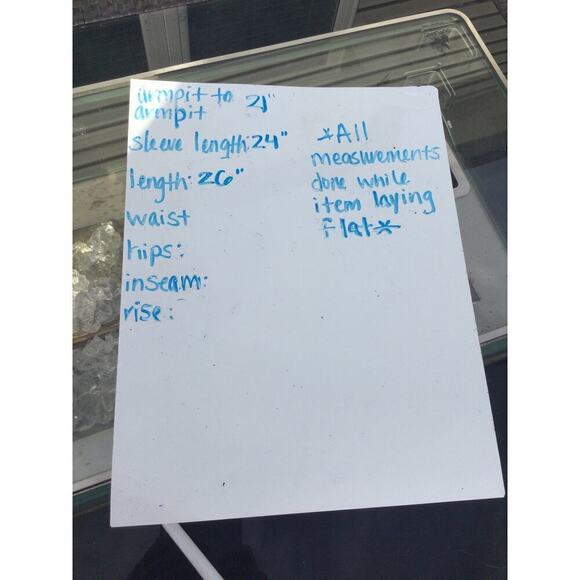 armpit to 21"
armpit
sleeve length: 24"
length: 26"
waist
hips:
inseam:
rise:
*All
measurements
done while
item laying
flat*